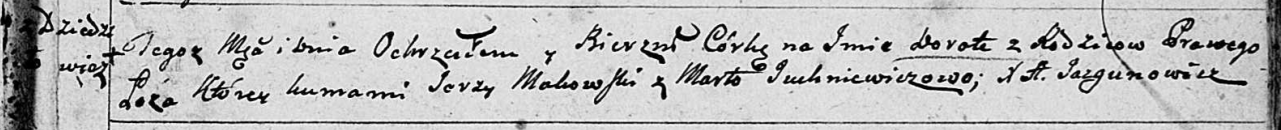 z Dziedzi Tegoż Mca i dnia Ochrzciłem y Bierzmł Córkę na Imie Dorotę z Rodziców Prawego
Łoża Którey kumami Jerzy Makowski z Martą Juchniewiczową; X A. Jazgunowicz